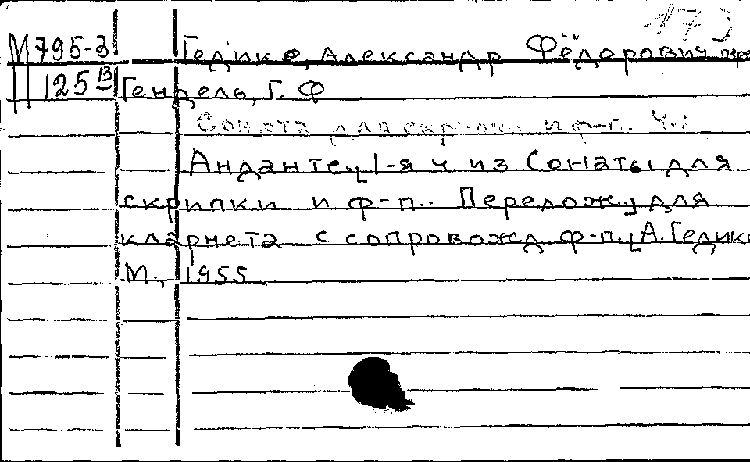 173
М795-3 Гедике, Александр Фёдорович пер
П 125 В Гендель, Г. Ф
Соната для скрипки и ф-п. Ч.1
Анданте, 1-я ч из Сонаты для
скрипки и ф-п.. Перелож. для
кларнета с сопровожд. ф-п. А. Гедике
М., 1955